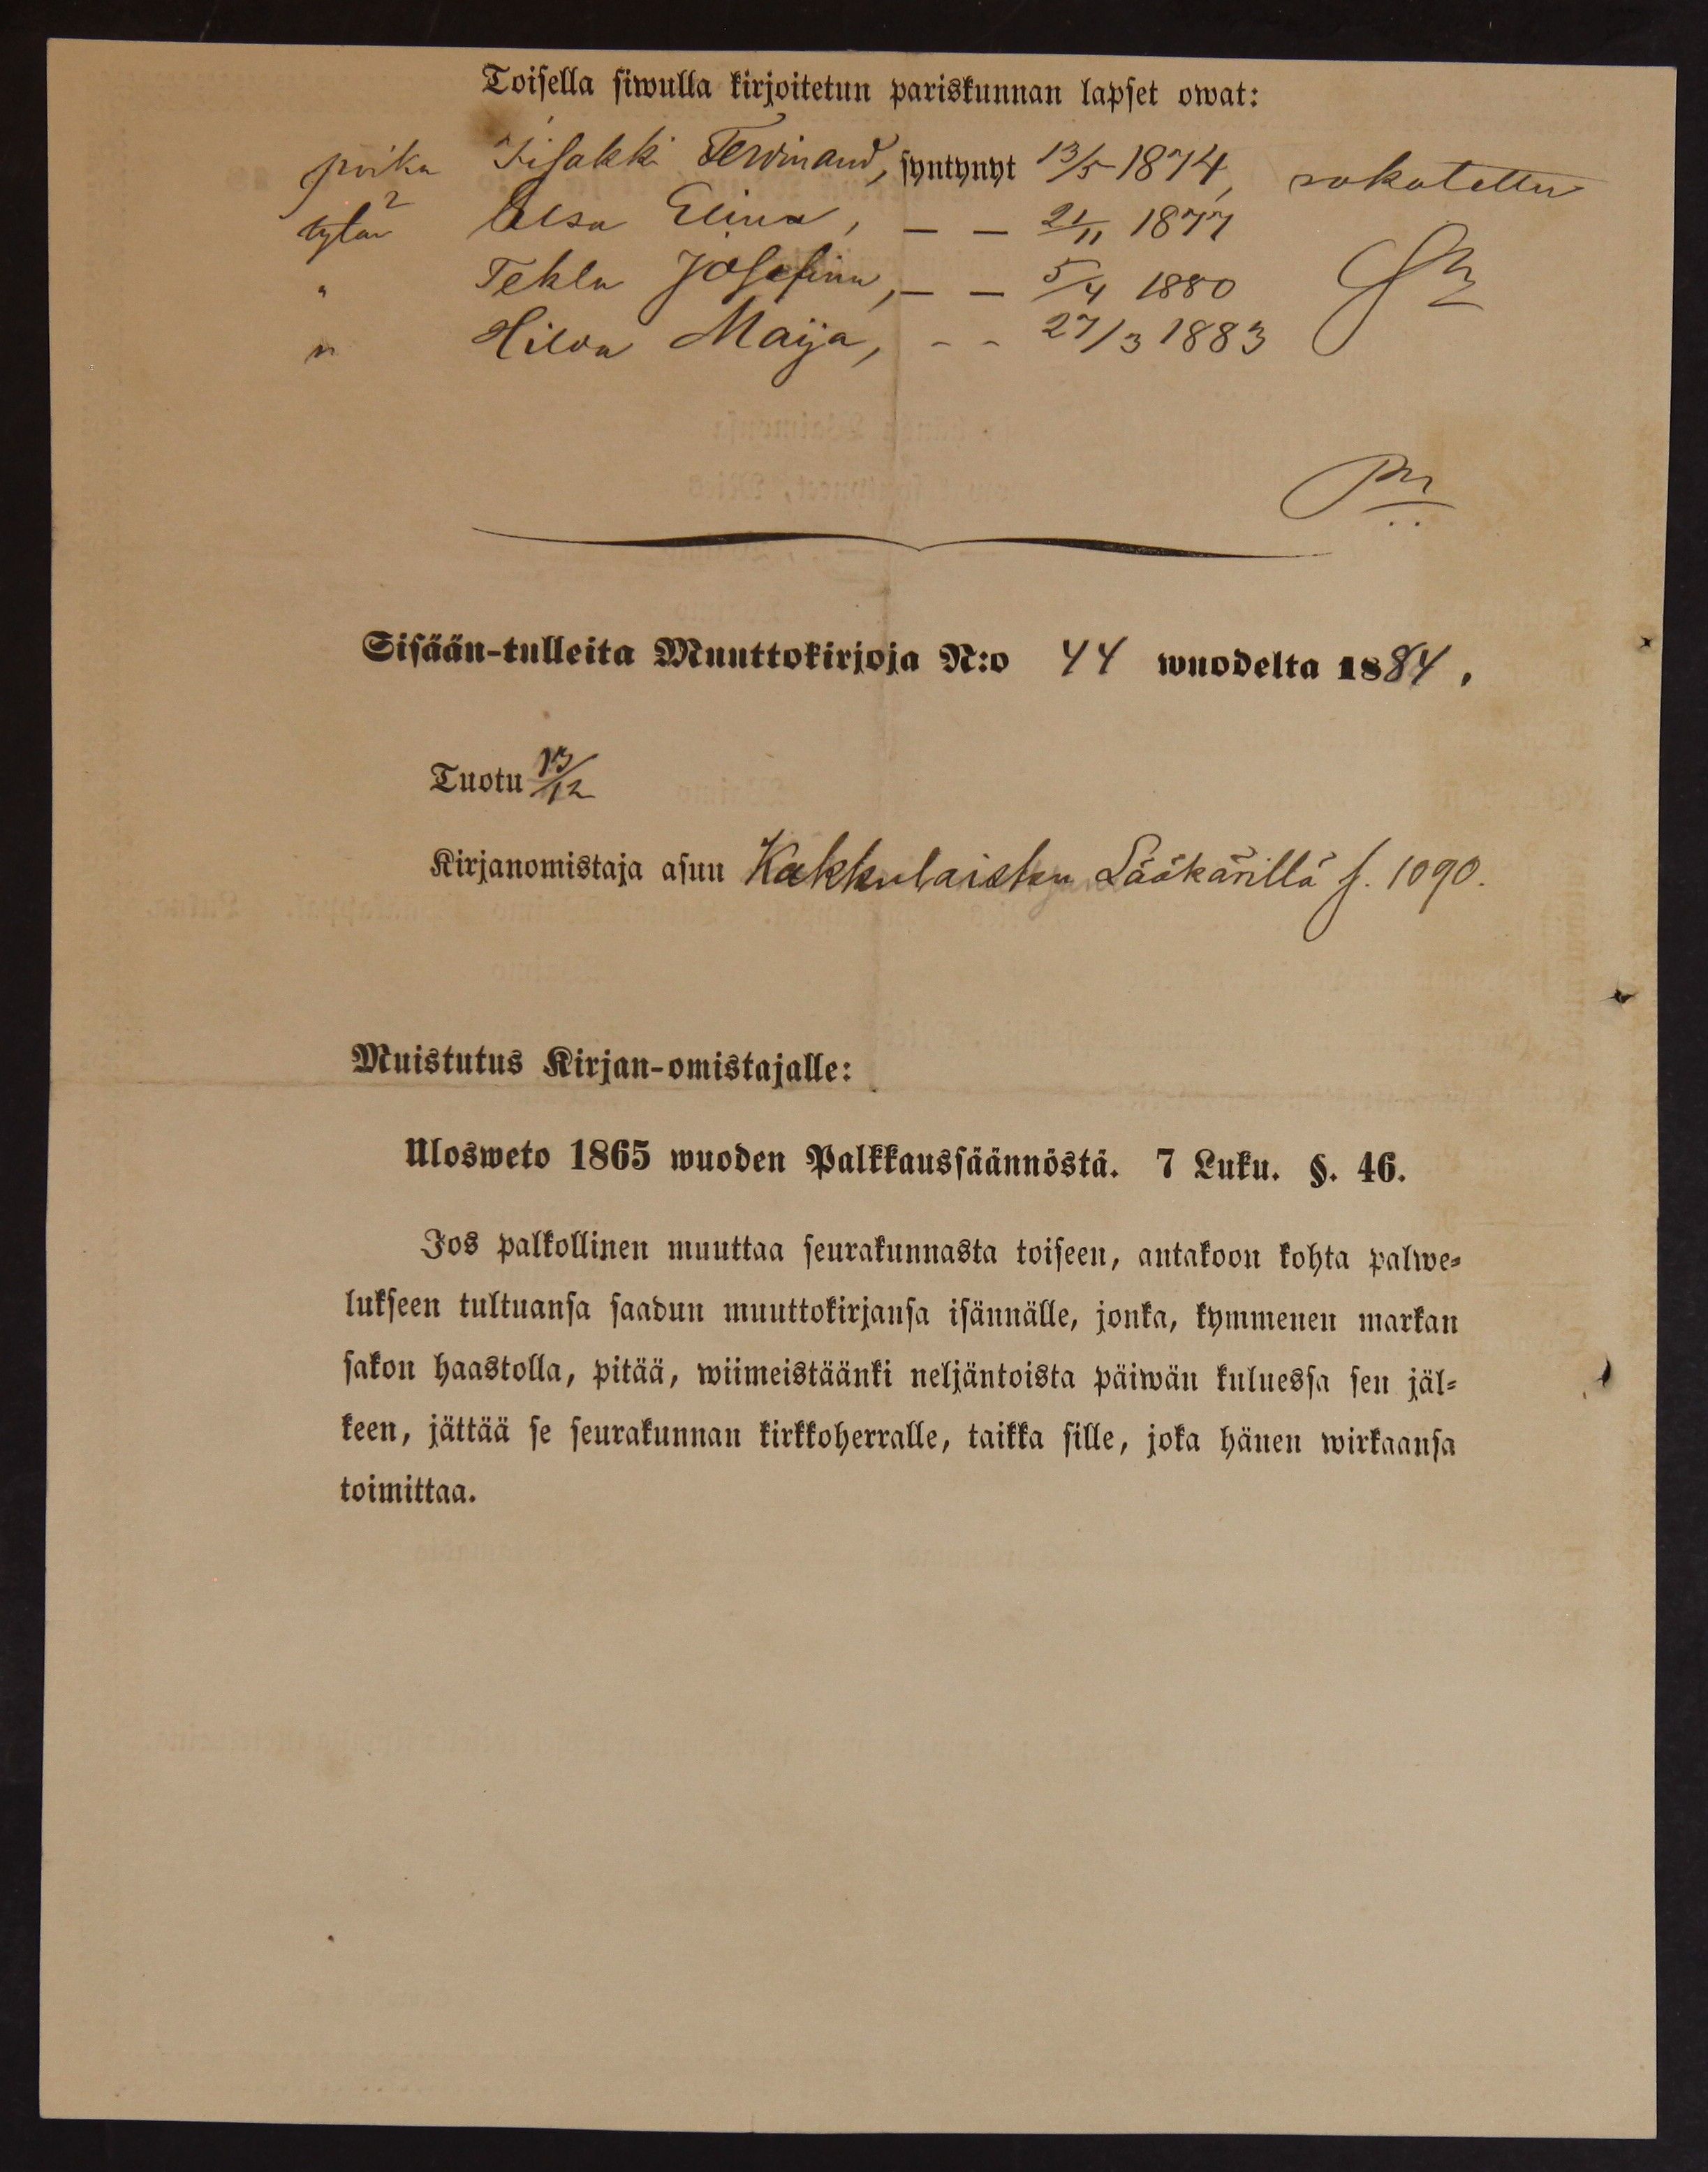 Toisella siwulla kirjoitetun pariskunnan lapset owat:
poika Iisakki Ferdinand, syntynyt 13/5 1874, rokotettu
tytär Elsa Elina, — — 21/11 1877
" Tekla Josefina, — — 5/4 1880
" Hilda Maija, - - 27/3 1883
Sisään-tulleita Muuttokirjoja N:o 44 wuodelta 1884.
Tuotu 13/12
Kirjanomistaja asuu Kakkulaisten Lääkärillä s. 1090.
Muistutus Kirjan-omistajalle:
Ulosweto 1865 wuoden Palkkaussäännöstä. 7 Luku. §. 46.
Jos palkollinen muuttaa seurakunnasta toiseen, antakoon kohta palwe-
lukseen tultuansa saadun muuttokirjansa isännälle, jonka, kymmenen markan
sakon haastolla, pitää, wiimeistäänki neljäntoista päiwän kuluessa sen jäl-
keen, jättää se seurakunnan kirkkoherralle, taikka sille, joka hänen wirkaansa
toimittaa.